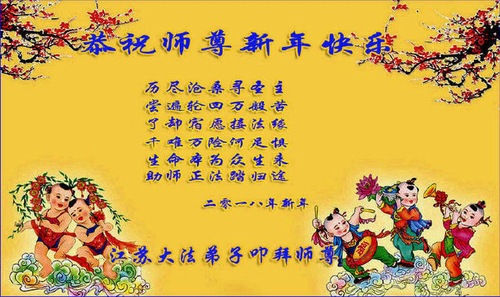 恭祝师尊新年快乐
历尽沧桑寻圣主
尝遍轮回万般苦
了却宿愿接法缘
千难万险何足惧
生命本为众生来
助师正法踏归途
二零一八年新年
江苏大法弟子叩拜师尊